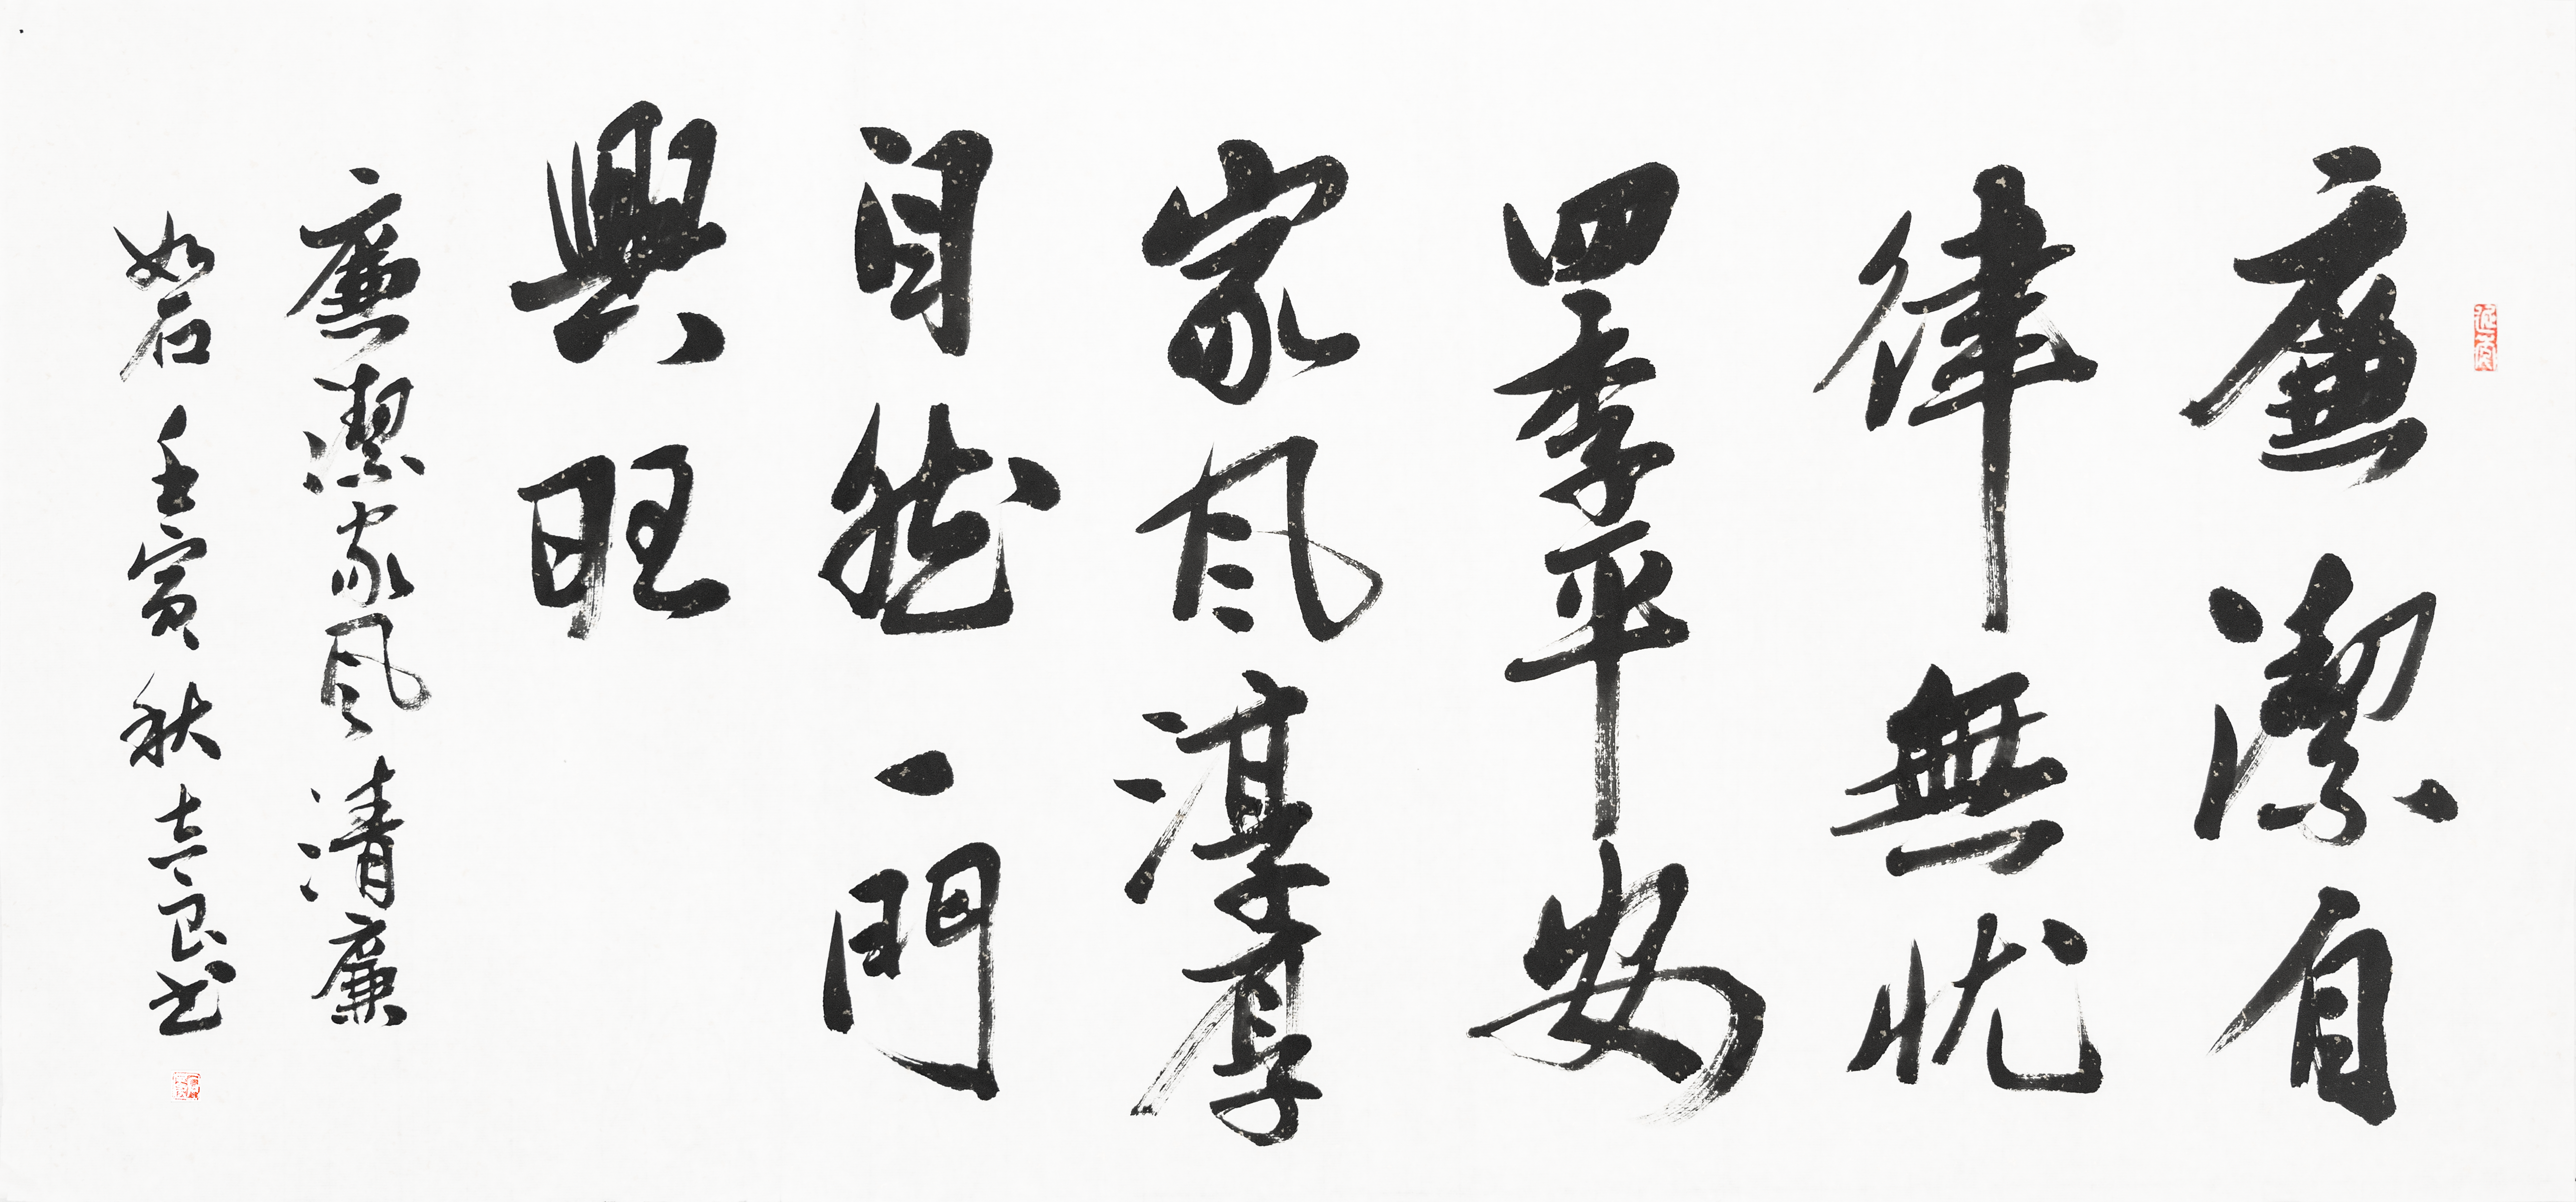 廉潔自
律無忧
四季平安
家風淳厚
自然一門
興旺
廉潔家風清廉
如石壬寅秋良书